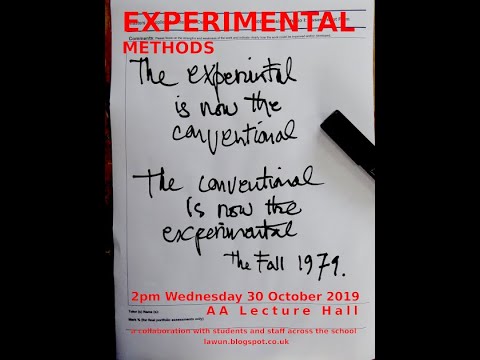 EXPERIMENTAL
METHODS
Comments
The experimtal
is now the
conventional
The conventional
Is now the
experimental
The Fall 1979.
2pm Wednesday 30 October 2019
AA Lecture Hall
Mark % (for final portfolio assessments only)
a collaboration with students and staff across the school
lawun.blogspot.co.uk